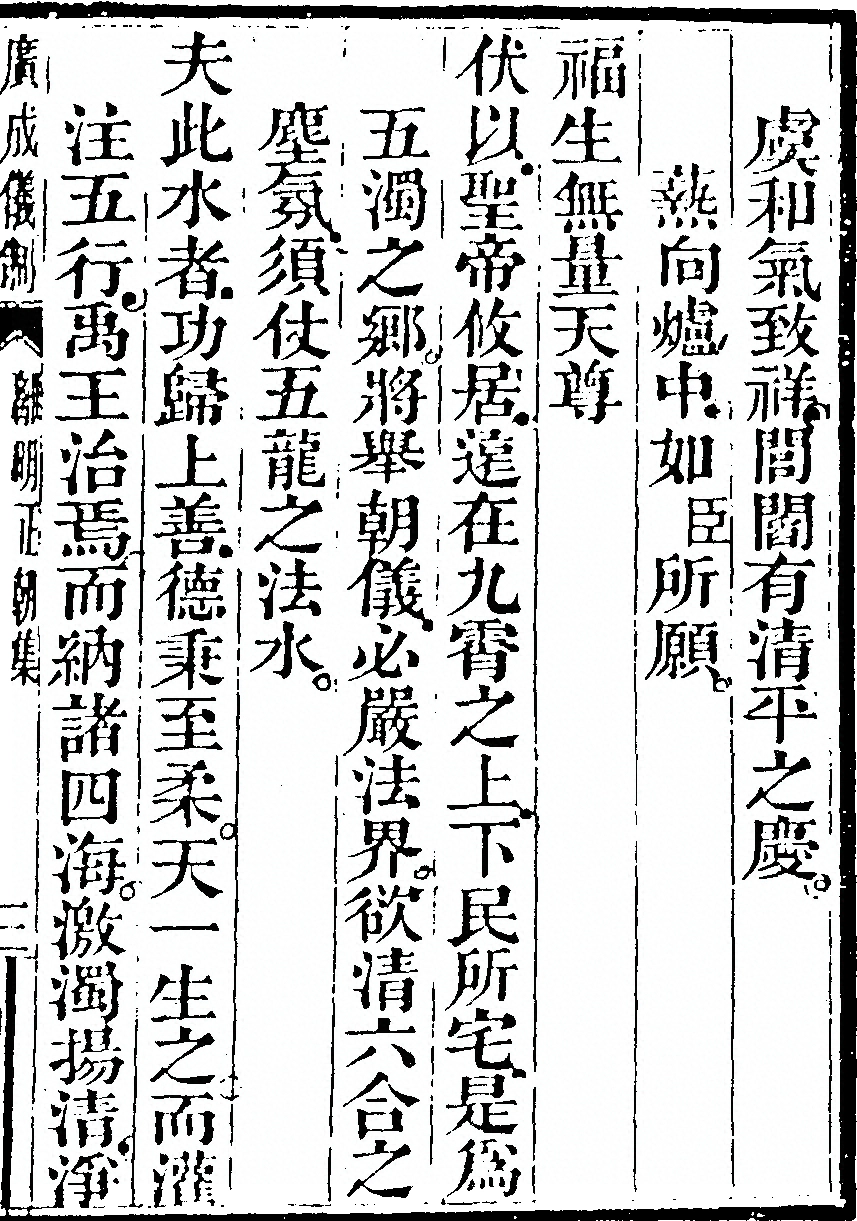 虞和氣致祥閭閻有清平之慶。
爇向爐中如臣所願。
福生無量天尊
伏以聖帝攸居蓬在九霄之上下民所宅是為
五濁之鄉。將舉朝儀必嚴法界。欲清六合之
塵氛須仗五龍之法水。
夫此水者功歸上善德秉至柔。天一生之而灌
注五行禹王治焉而納諸四海。激濁揚清淨
廣成儀制 離明正朝集 三